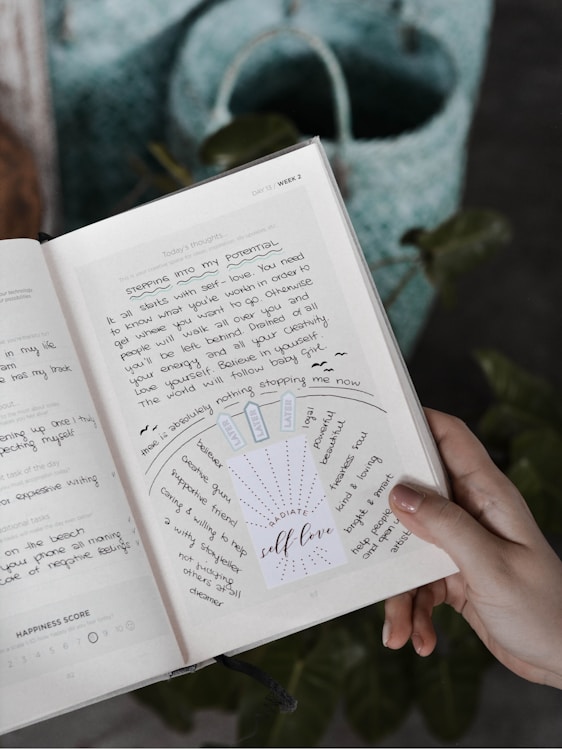 in my life
am
e has my track
ening up once I truly
pecting myself
task of the day
or expressive writing
on the beach
your phone all morning
of negative feelings
HAPPINESS SCORE
2 3 4 5 6 7 8 9 10
92
DAY 13 / WEEK 2
Today's thoughts...
STEPPING INTO MY POTENTIAL
It all starts with self-love. You need
to know what you're worth in order to
get where you want to go otherwise
people will walk all over you and
you'll be left behind. Drained of all
your energy and all your creativity.
Love yourself. Believe in yourself.
The world will follow baby girl.
is absolutely nothing stopping me now
believer
creative guru
supportive friend
caring & willing to help
a witty storyteller
not
others at all
dreamer
LATER
LATER
LATER
RADIATE
self love
loyal
powerful
beautiful
fearless soul
kind & loving
bright & smart
help people
and
artist